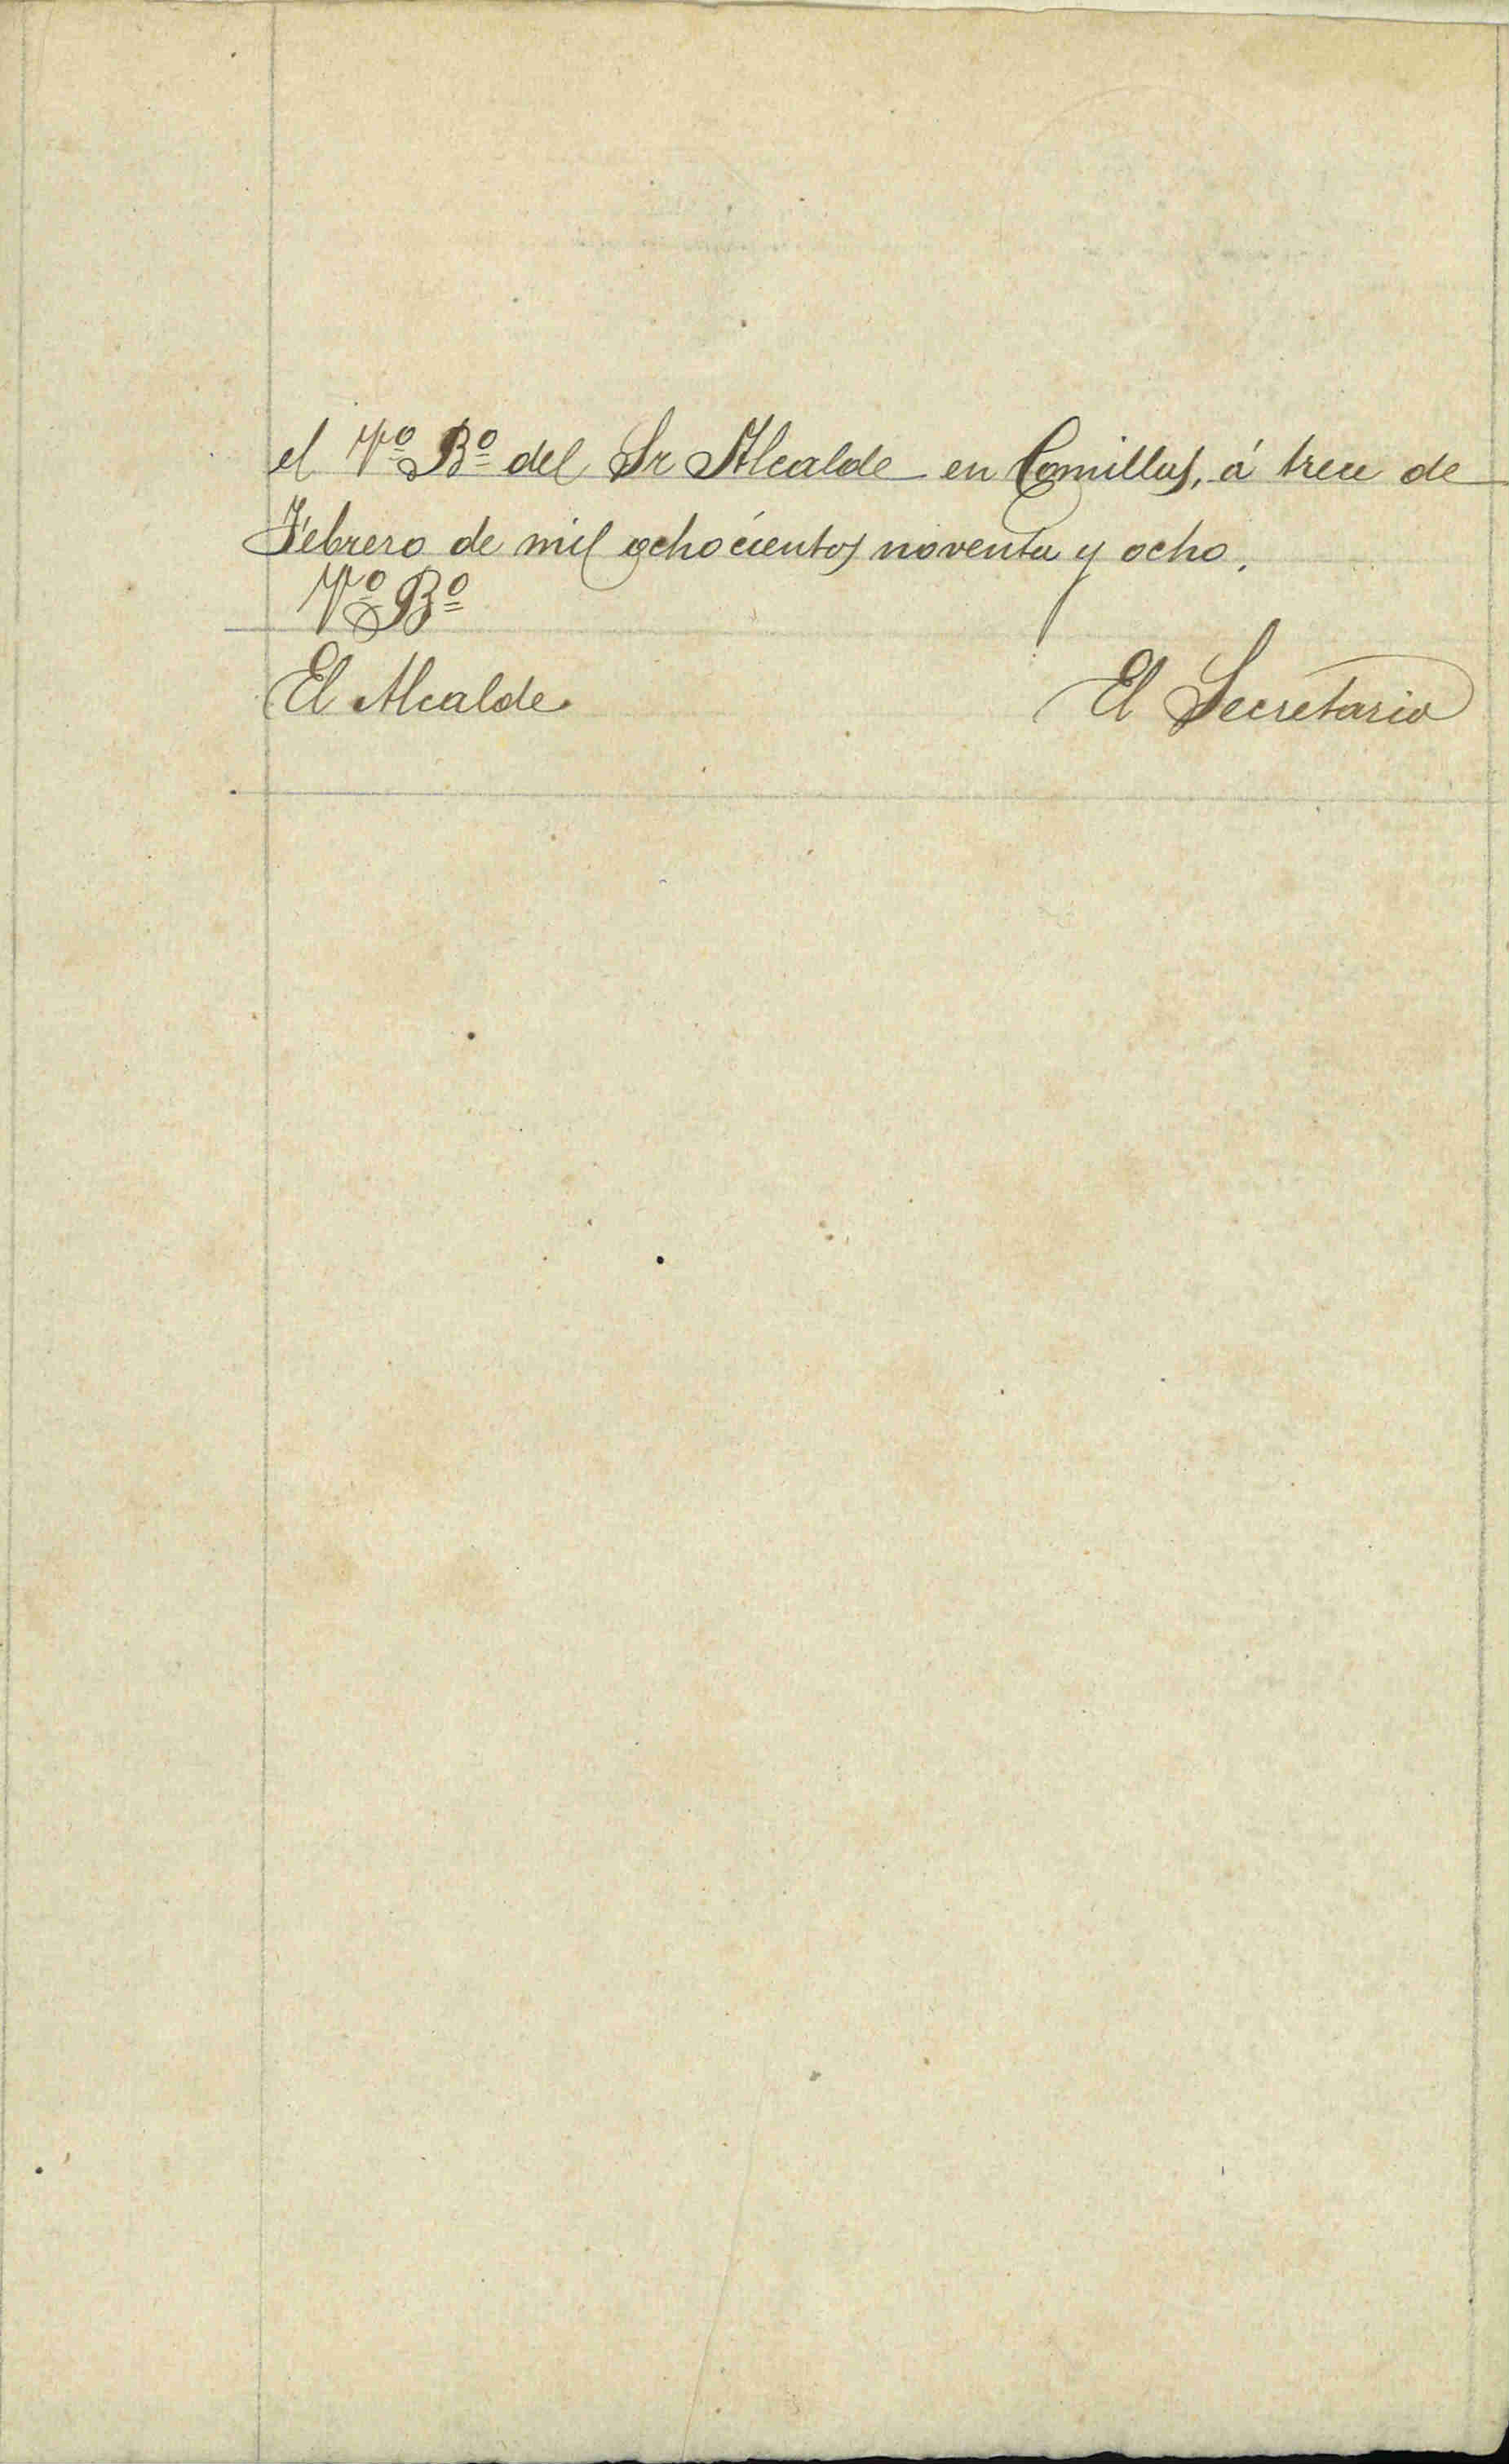 el Vº Bº del Sr Alcalde en Comillas, á trece de
Febrero de mil ochocientos noventa y ocho.
Vº Bº
El Alcalde
El Secretario